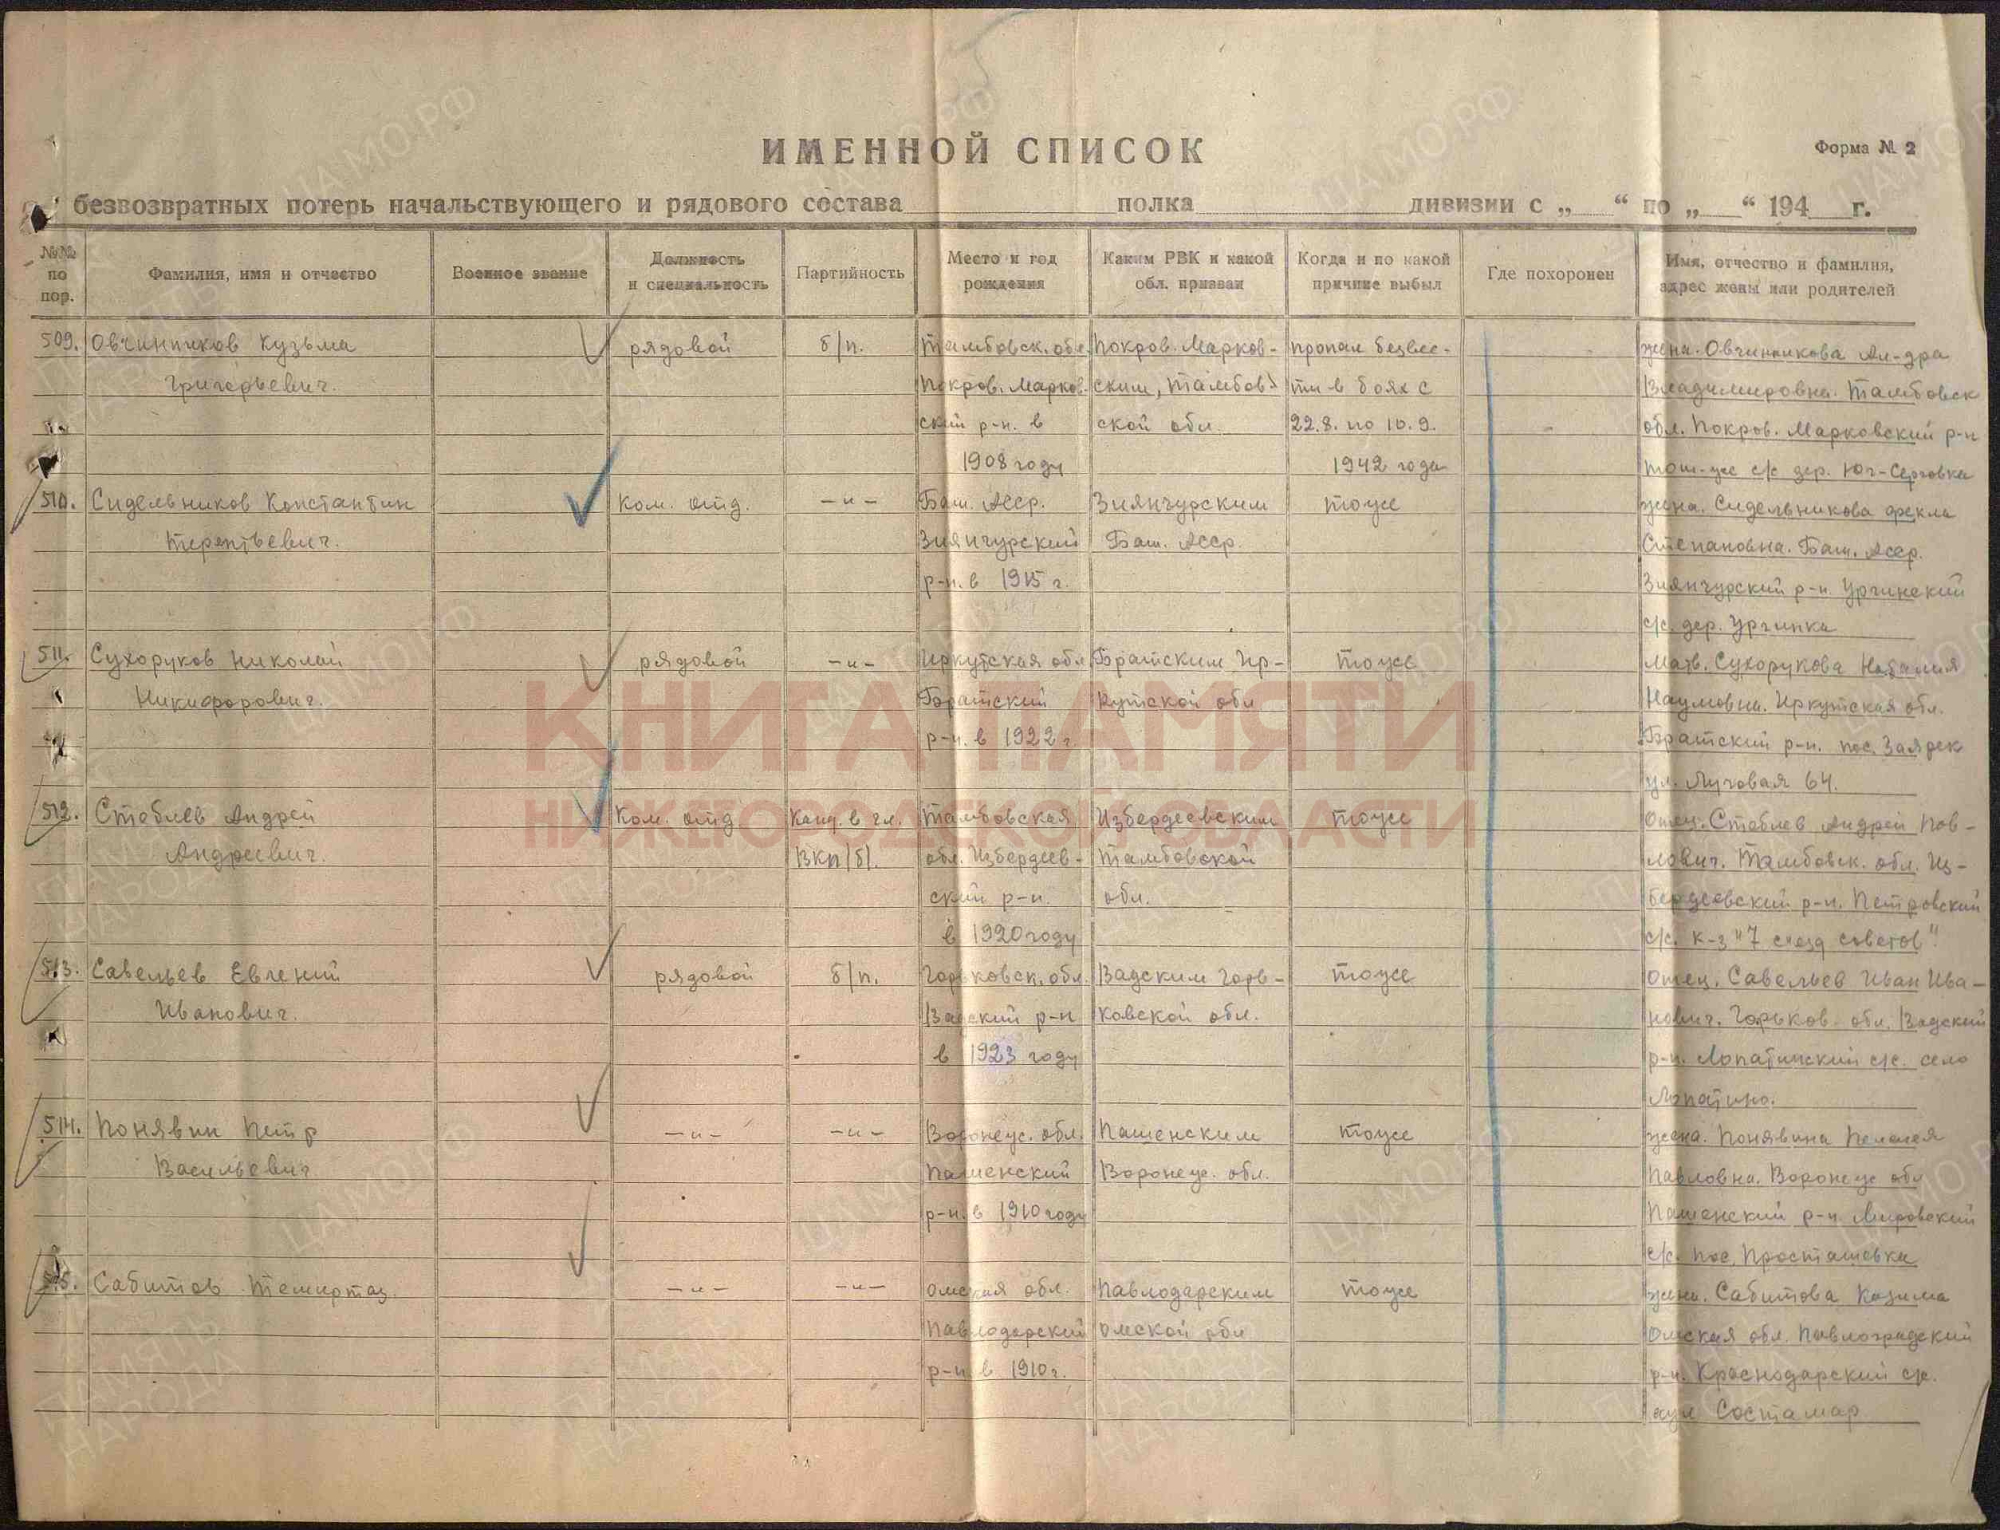 ИМЕННОЙ СПИСОК
Форма № 2
безвозвратных потерь начальствующего и рядового состава полка дивизии с „ “ по „ “ 194 г.
№№ по пор.
Фамилия, имя и отчество
Военное звание
Должность и специальность
Партийность
Место и год рождения
Каким РВК и какой обл. призван
Когда и по какой причине выбыл
Где похоронен
Имя, отчество и фамилия, адрес жены или родителей
509. Овчинников Кузьма рядовой б/п. Тамбовск. обл. Покров. Марков- пропал безвес- жена. Овчинникова Ал-дра
Григорьевич. Покров. Марков- ским, Тамбов- ти в боях с Владимировна. Тамбовск
ский р-н. в ской обл. 22.8. по 10.9. обл. Покров. Марковский р-н
1908 году 1942 года с/с дер. Юг-Серговка
510. Сидельников Константин Ком. отд. -и- Баш. Асср. Зиянчурским тоже жена. Сидельникова Фекла
Терентьевич. Зиянчурский Баш. Асср. Степановна. Баш. Асср.
р-н. в 1915 г. Зиянчурский р-н Ургинский
с/с. дер. Ургинка
511. Сухоруков Николай рядовой -и- Иркутская обл Братским Ир- тоже мать. Сухорукова Наталия
Никифорович. Братский кутской обл Наумовна. Иркутская обл.
р-н. в 1922 г. Братский р-н. пос. Заярск
ул. Луговая 64.
512. Стеблев Андрей Ком. отд Канд. в чл. Тамбовская Избердеевским тоже Отец. Стеблев Андрей Пав-
Андреевич. ВКП/б/. обл. Избердеев- Тамбовской лович. Тамбовск. обл. Из-
ский р-н. обл. бердеевский р-н. Петровский
в 1920 году с/с. к-з "7 съезд советов".
513. Савельев Евгений рядовой б/п. Горьковск. обл. Вадским Горь- тоже Отец. Савельев Иван Ива-
Иванович. Вадский р-н ковской обл. нович. Горьков. обл. Вадский
в 1923 году р-н. Лопатинский с/с. село
Лопатино.
514. Понявин Петр -и- -и- Воронеж. обл. Пашенским тоже жена. Понявина Пелагея
Васильевич. Пашенский Воронеж. обл. Павловна. Воронеж обл
р-н. в 1910 году Пашенский р-н
с/с. пос. Просташевка
515. Сабитов Темиртаз -и- -и- Омская обл. Павлодарским тоже жена. Сабитова Казима
Павлодарский Омской обл Омская обл. Павлоградский
р-н. в 1910 г. р-н. Краснодарский с/с.
аул Состамар
КНИГА ПАМЯТИ
НИЖЕГОРОДСКОЙ ОБЛАСТИ
ЦАМО.РФ
ПАМЯТЬ НАРОДА